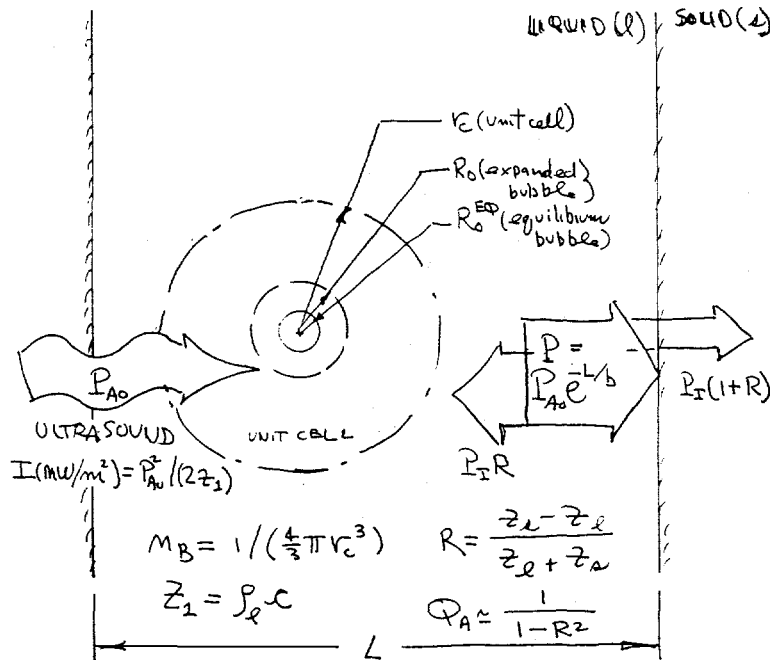 LIQUID(l) SOLID(s)
r_c (unit cell)
R_0 (expanded bubble)
R_0^EQ (equilibium bubble)
P_A0
ULTRASOUND
I(mW/m²) = P_A0²/(2Z_1)
UNIT CELL
P = P_A0 e^-L/b
P_I(1+R)
P_I R
n_B = 1/(4/3 π r_c³)
R = (z_s - z_l)/(z_l + z_s)
Z_1 = ρ_l c
Q_A ≃ 1/(1-R²)
L